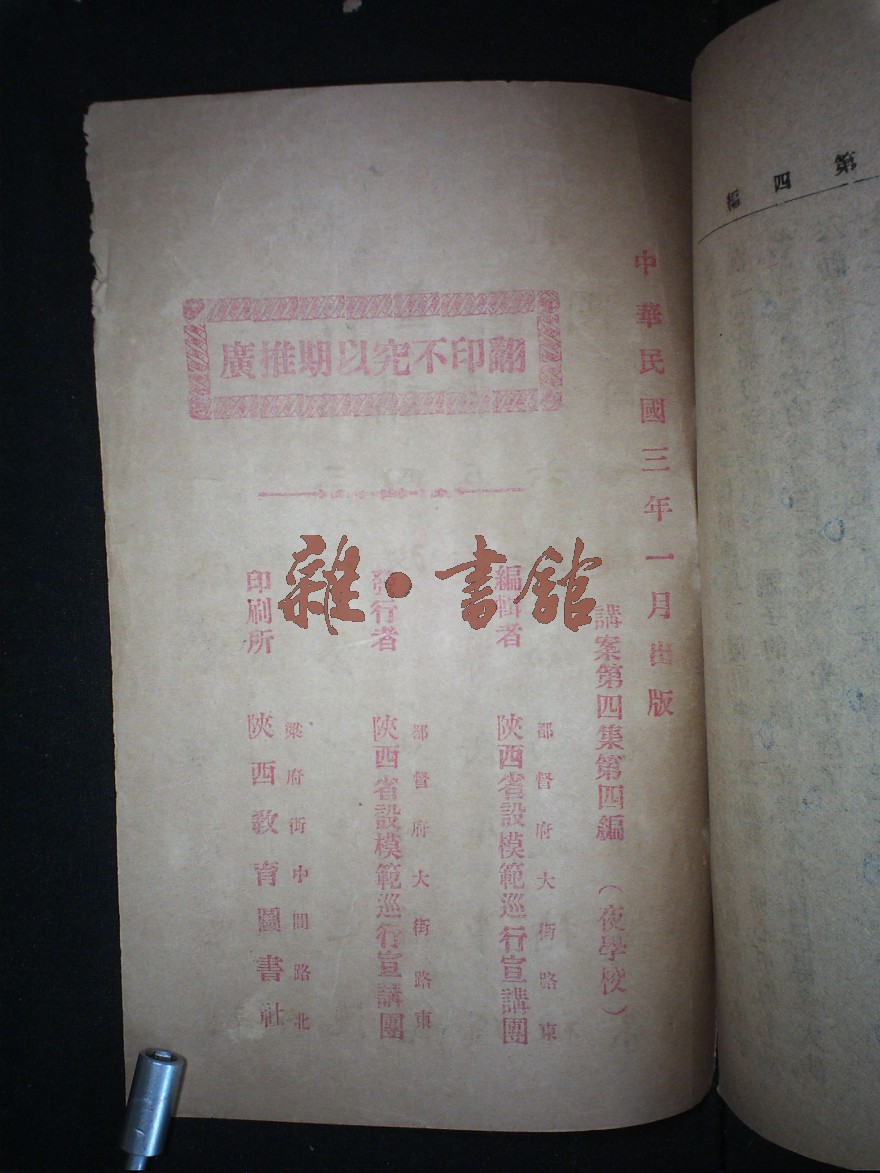 第四編
中華民國三年一月出版
講案第四集第四編（夜學校）
翻印不究以期推廣
編輯者
都督府大街路東
陝西省設模範巡行宣講團
發行者
都督府大街路東
陝西省設模範巡行宣講團
印刷所
梁府街中間路北
陝西教育圖書社
雜·書館